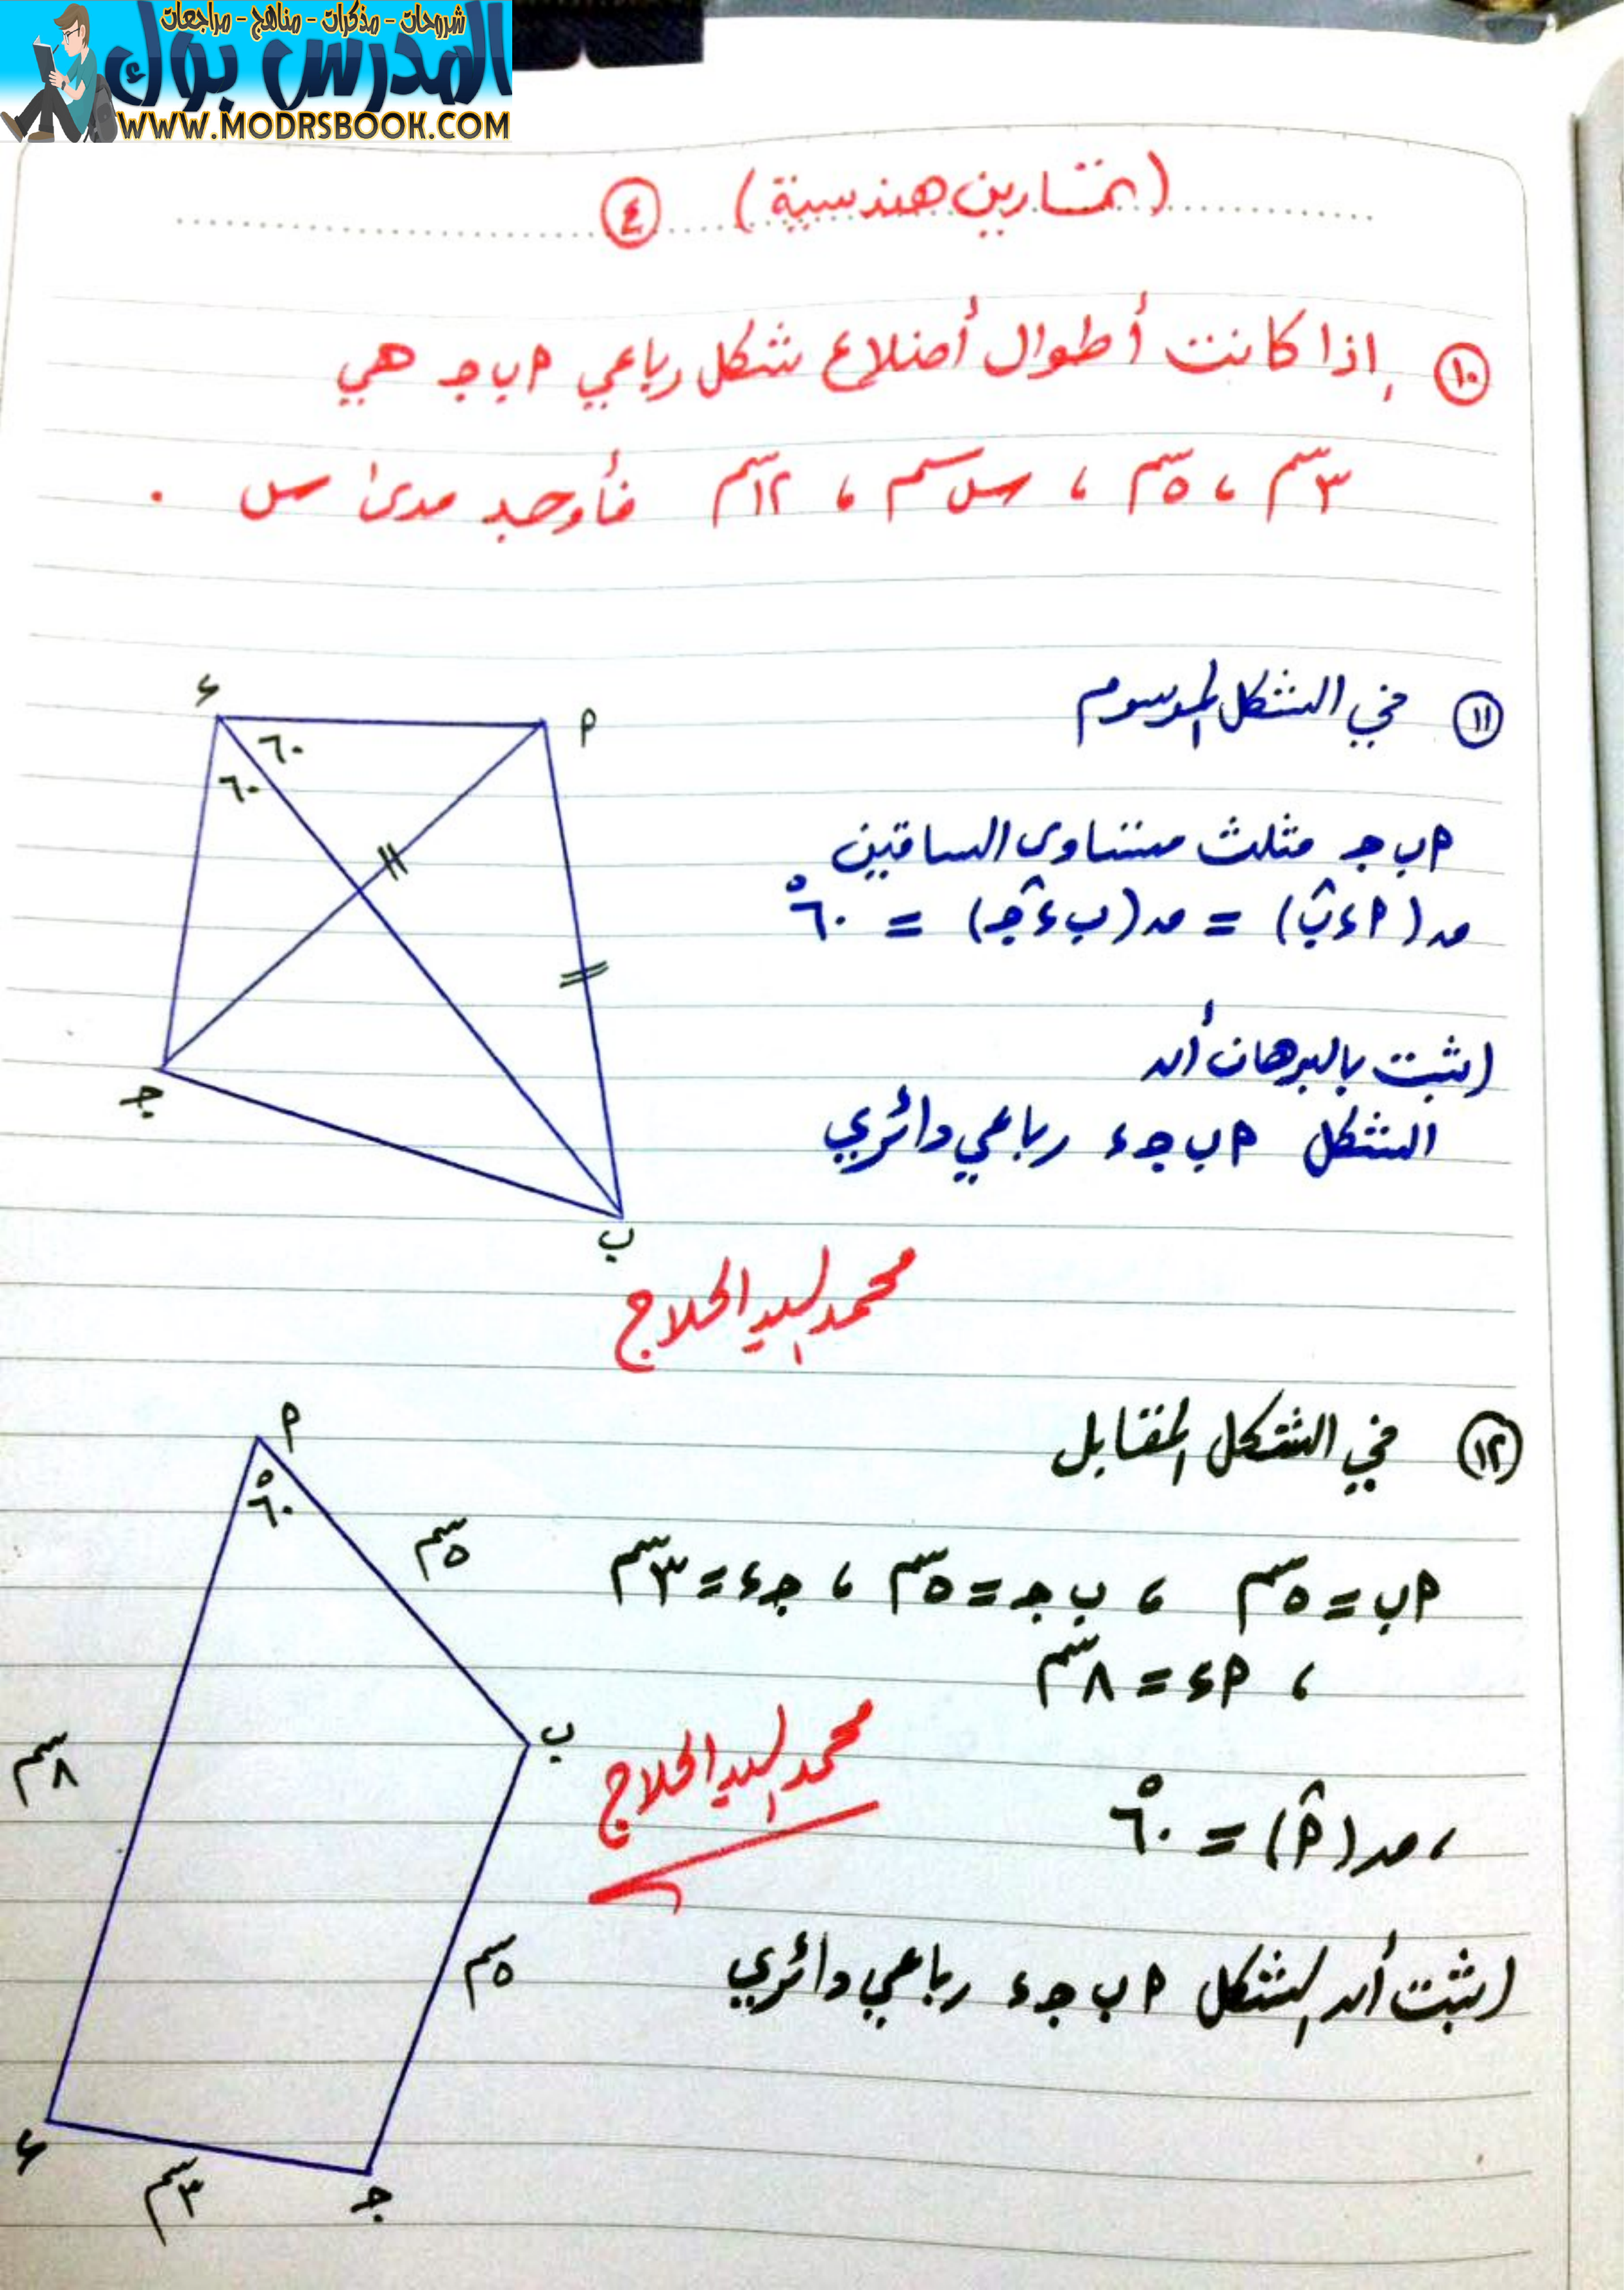 شروحات - مذكرات - مناهج - مراجعات
المدرس بوك
WWW.MODRSBOOK.COM
(تمارين هندسية) ٤
١٠ إذا كانت أطوال أضلاع شكل رباعي ٩ ب جـ هي
٣سم ، ٥سم ، س سم ، ١٢سم فأوجد مدى س .
١١ في الشكل المرسوم
٩ ب جـ مثلث متساوى الساقين
ق(٩ ء ب) = ق(ب ء جـ) = ٦٠°
اثبت بالبرهان أن
الشكل ٩ ب جـ ء رباعي دائري
ء
٩
٦٠
٦٠
جـ
ب
محمد السيد الحلاج
١٢ في الشكل المقابل
٩ ب = ٥سم ، ب جـ = ٥سم ، جـ ء = ٣سم
، ٩ ء = ٨سم
، ق(٩) = ٦٠°
اثبت أن الشكل ٩ ب جـ ء رباعي دائري
٩
٦٠°
٥سم
ب
٨سم
محمد السيد الحلاج
٥سم
ء
٣سم
جـ